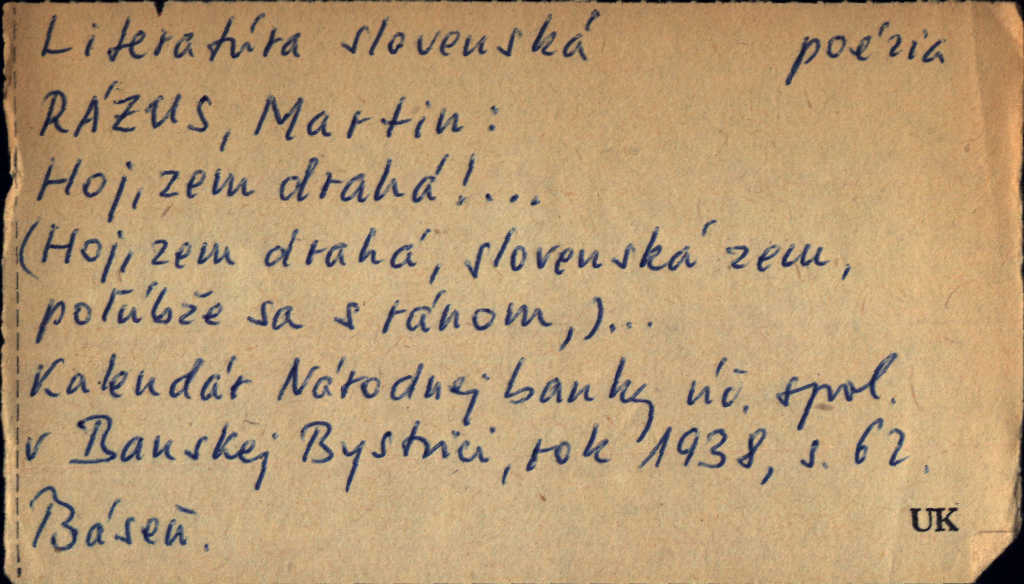 Literatúra slovenská poézia
RÁZUS, Martin:
Hoj, zem drahá!...
(Hoj, zem drahá, slovenská zem,
poľúbže sa s ránom,)...
Kalendár Národnej banky úč. spol.
v Banskej Bystrici, rok 1938, s. 62.
Báseň.
UK